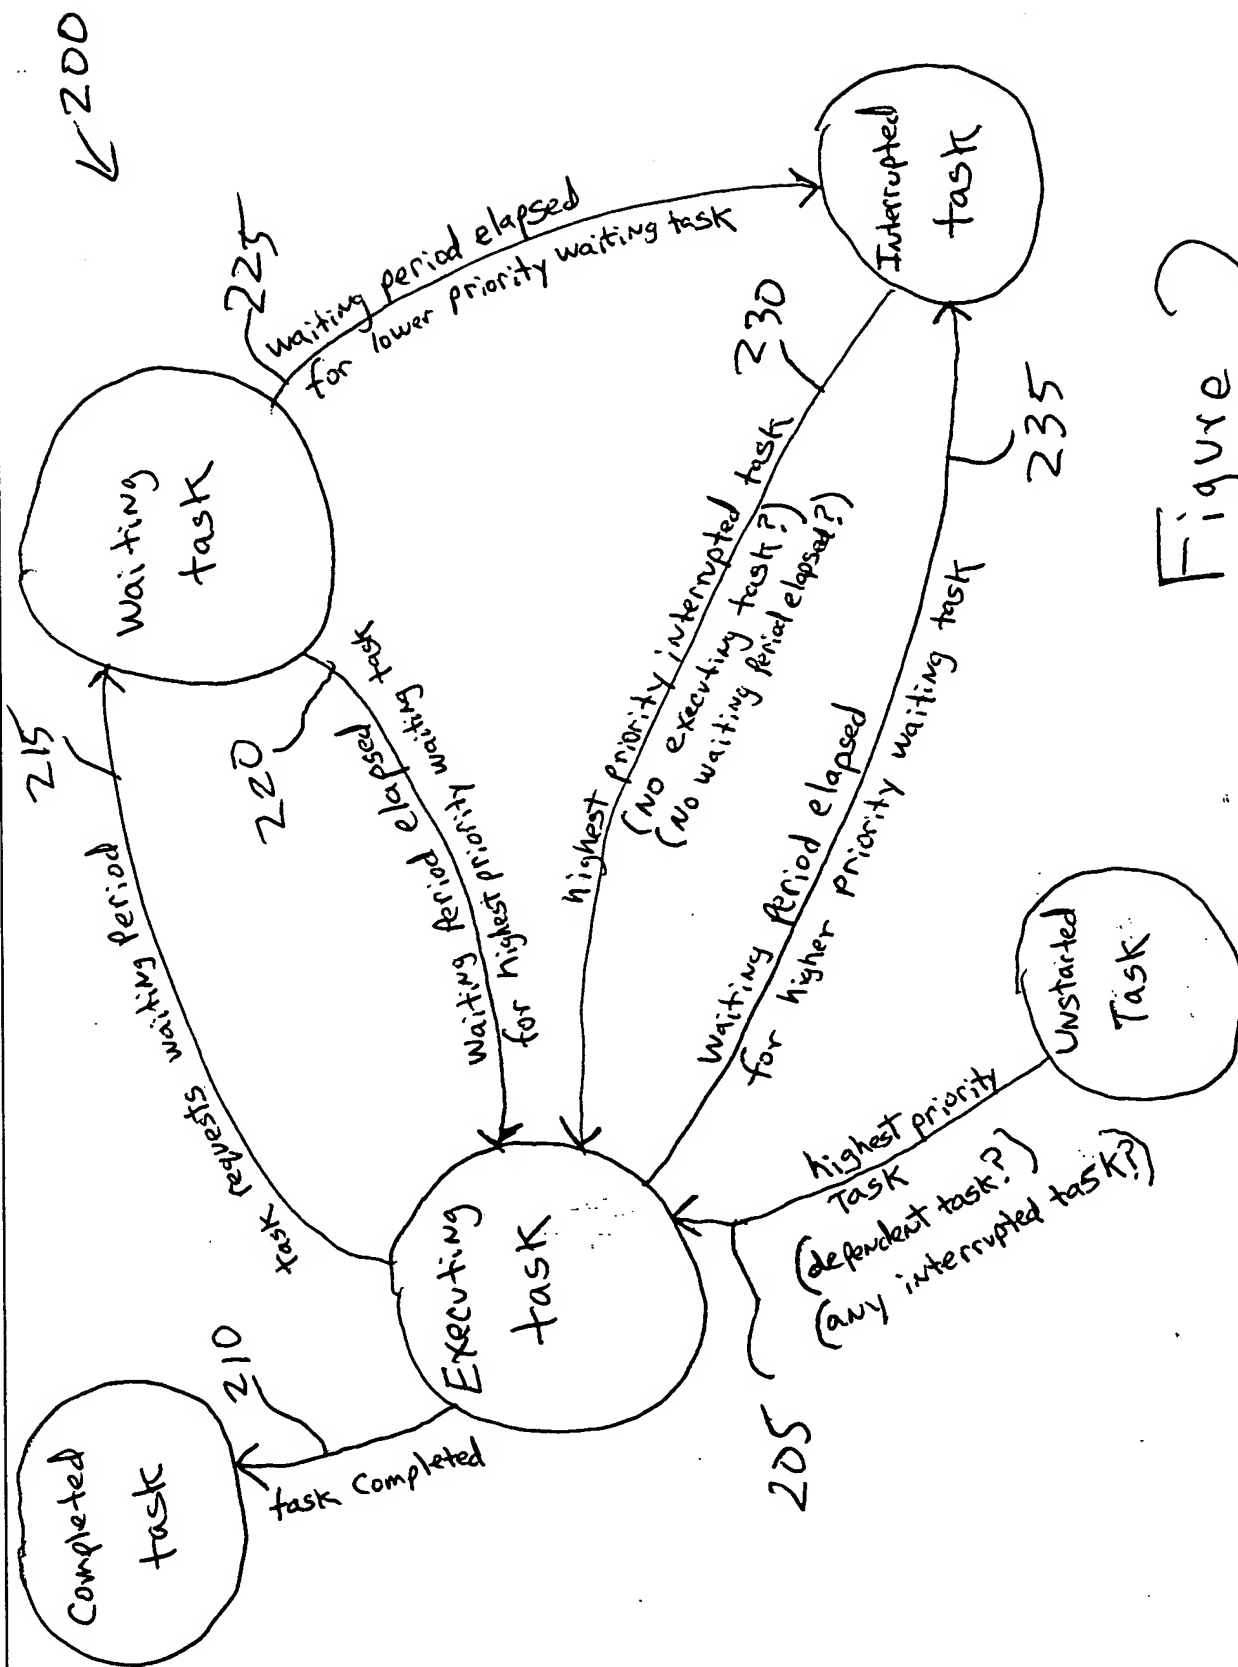 200
Completed
task
210
task Completed
Executing
task
task requests waiting Period
215
Waiting
task
220
Waiting Period elapsed
for highest priority waiting task
225
waiting period elapsed
for lower priority waiting task
Interrupted
task
230
highest priority interrupted task
(NO executing task?)
(NO waiting Period elapsed?)
Waiting Period elapsed
for higher priority waiting task
235
205
highest priority
Task
(dependent task?)
(any interrupted task?)
Unstarted
Task
Figure 2